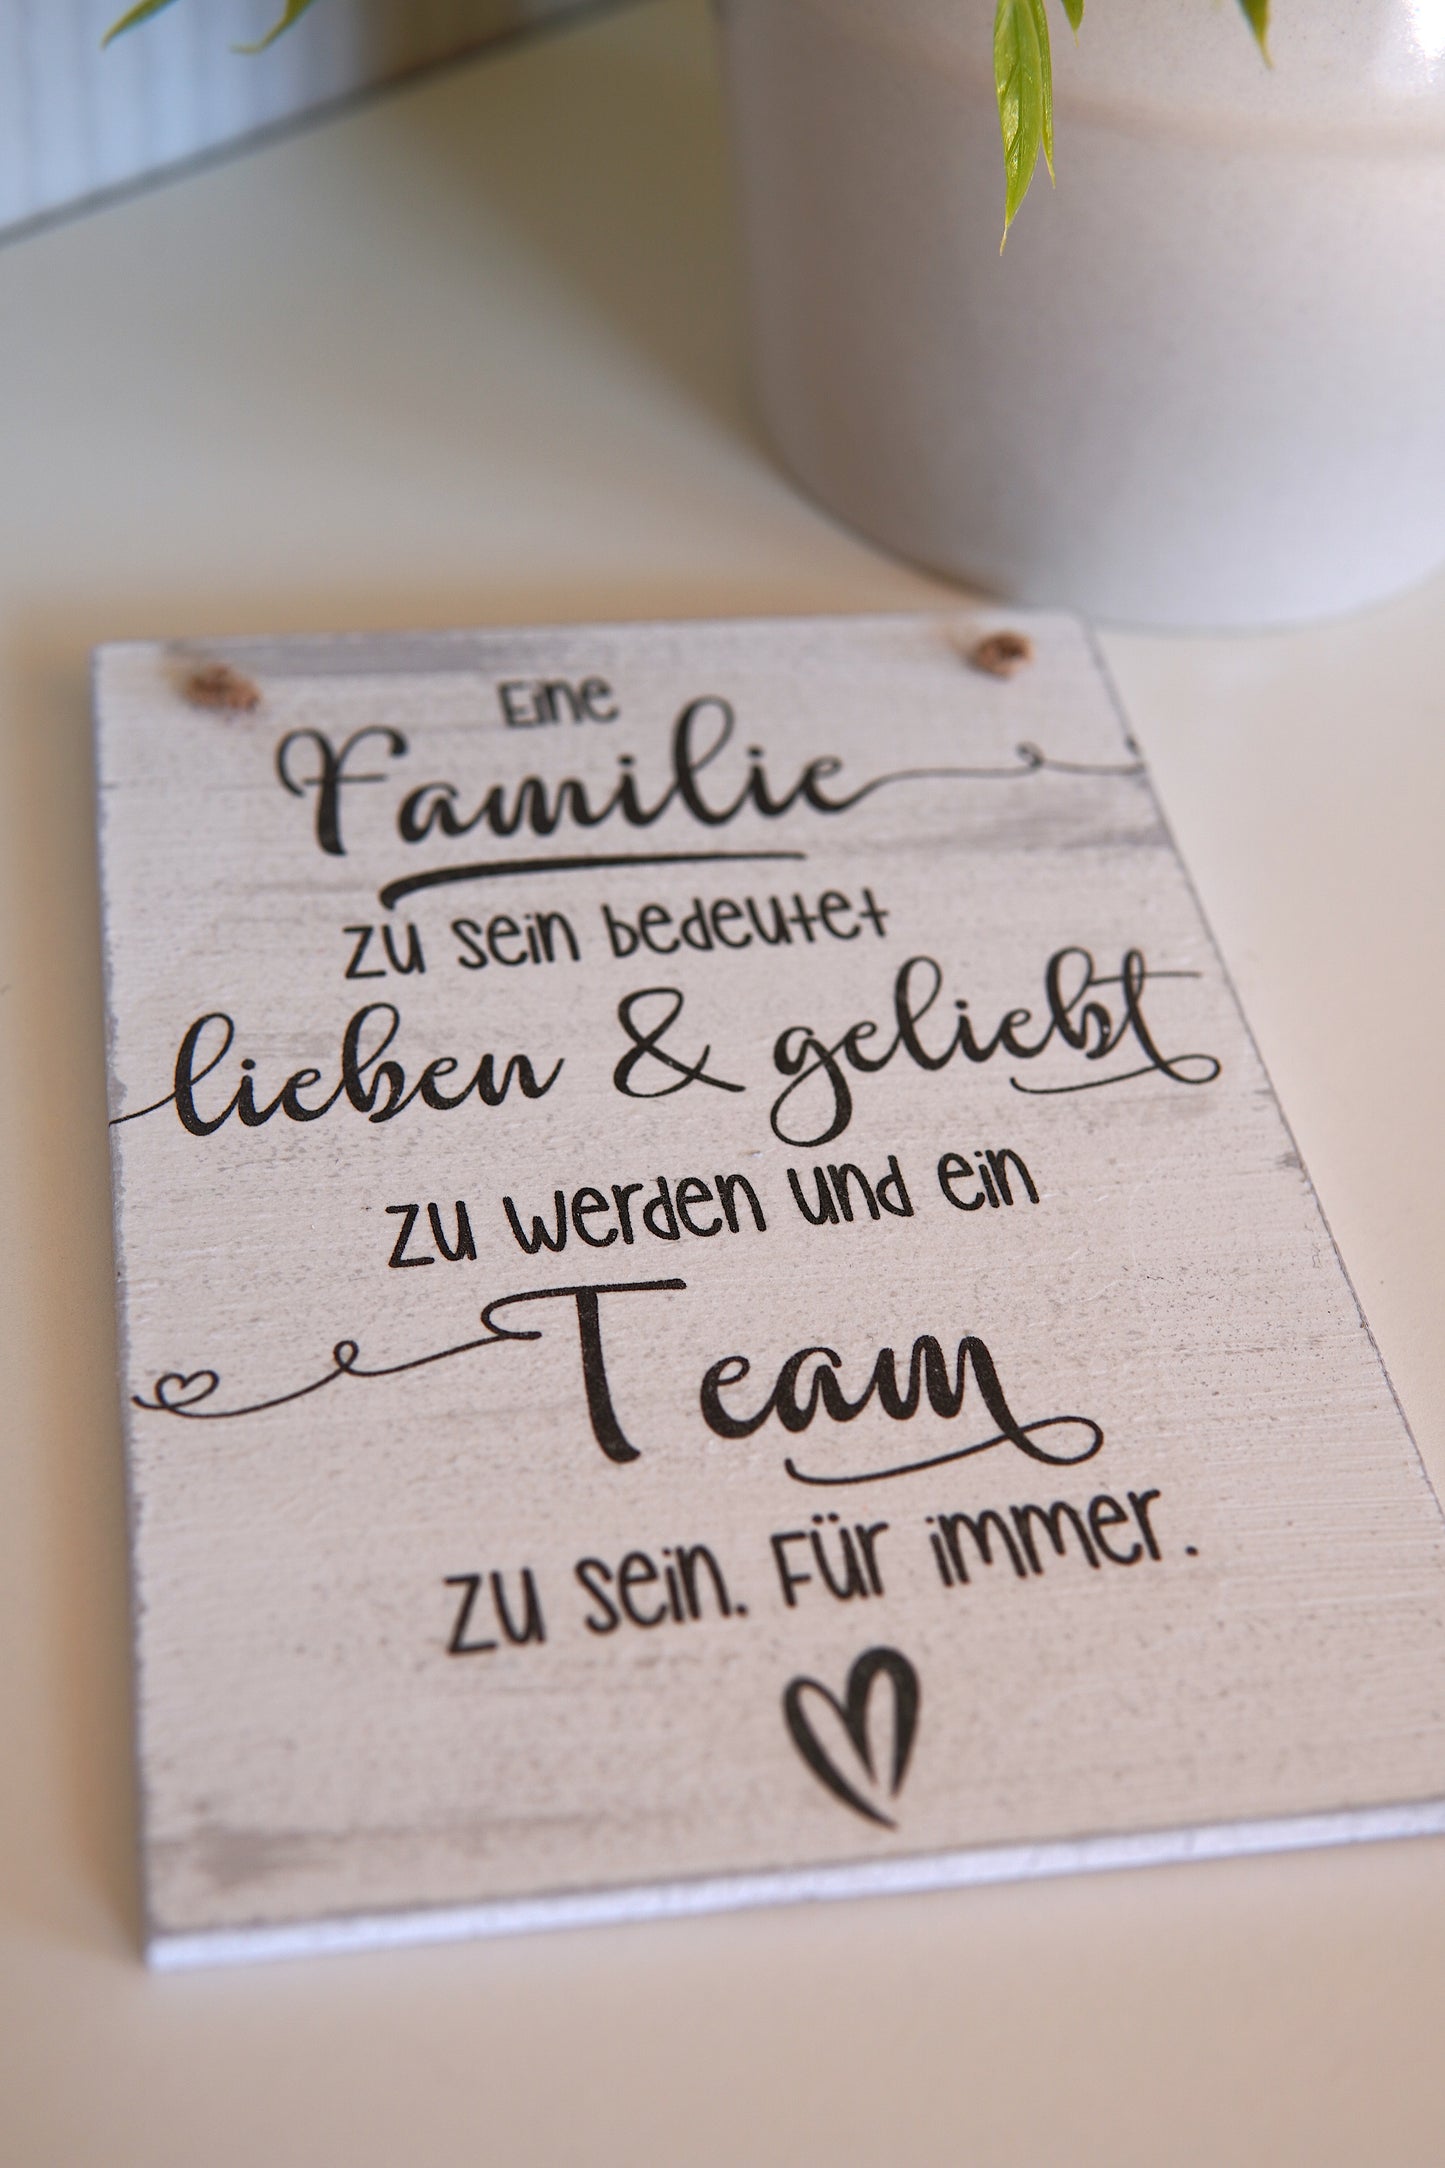 Eine
Familie
zu sein bedeutet
lieben & geliebt
zu werden und ein
Team
zu sein. Für immer.